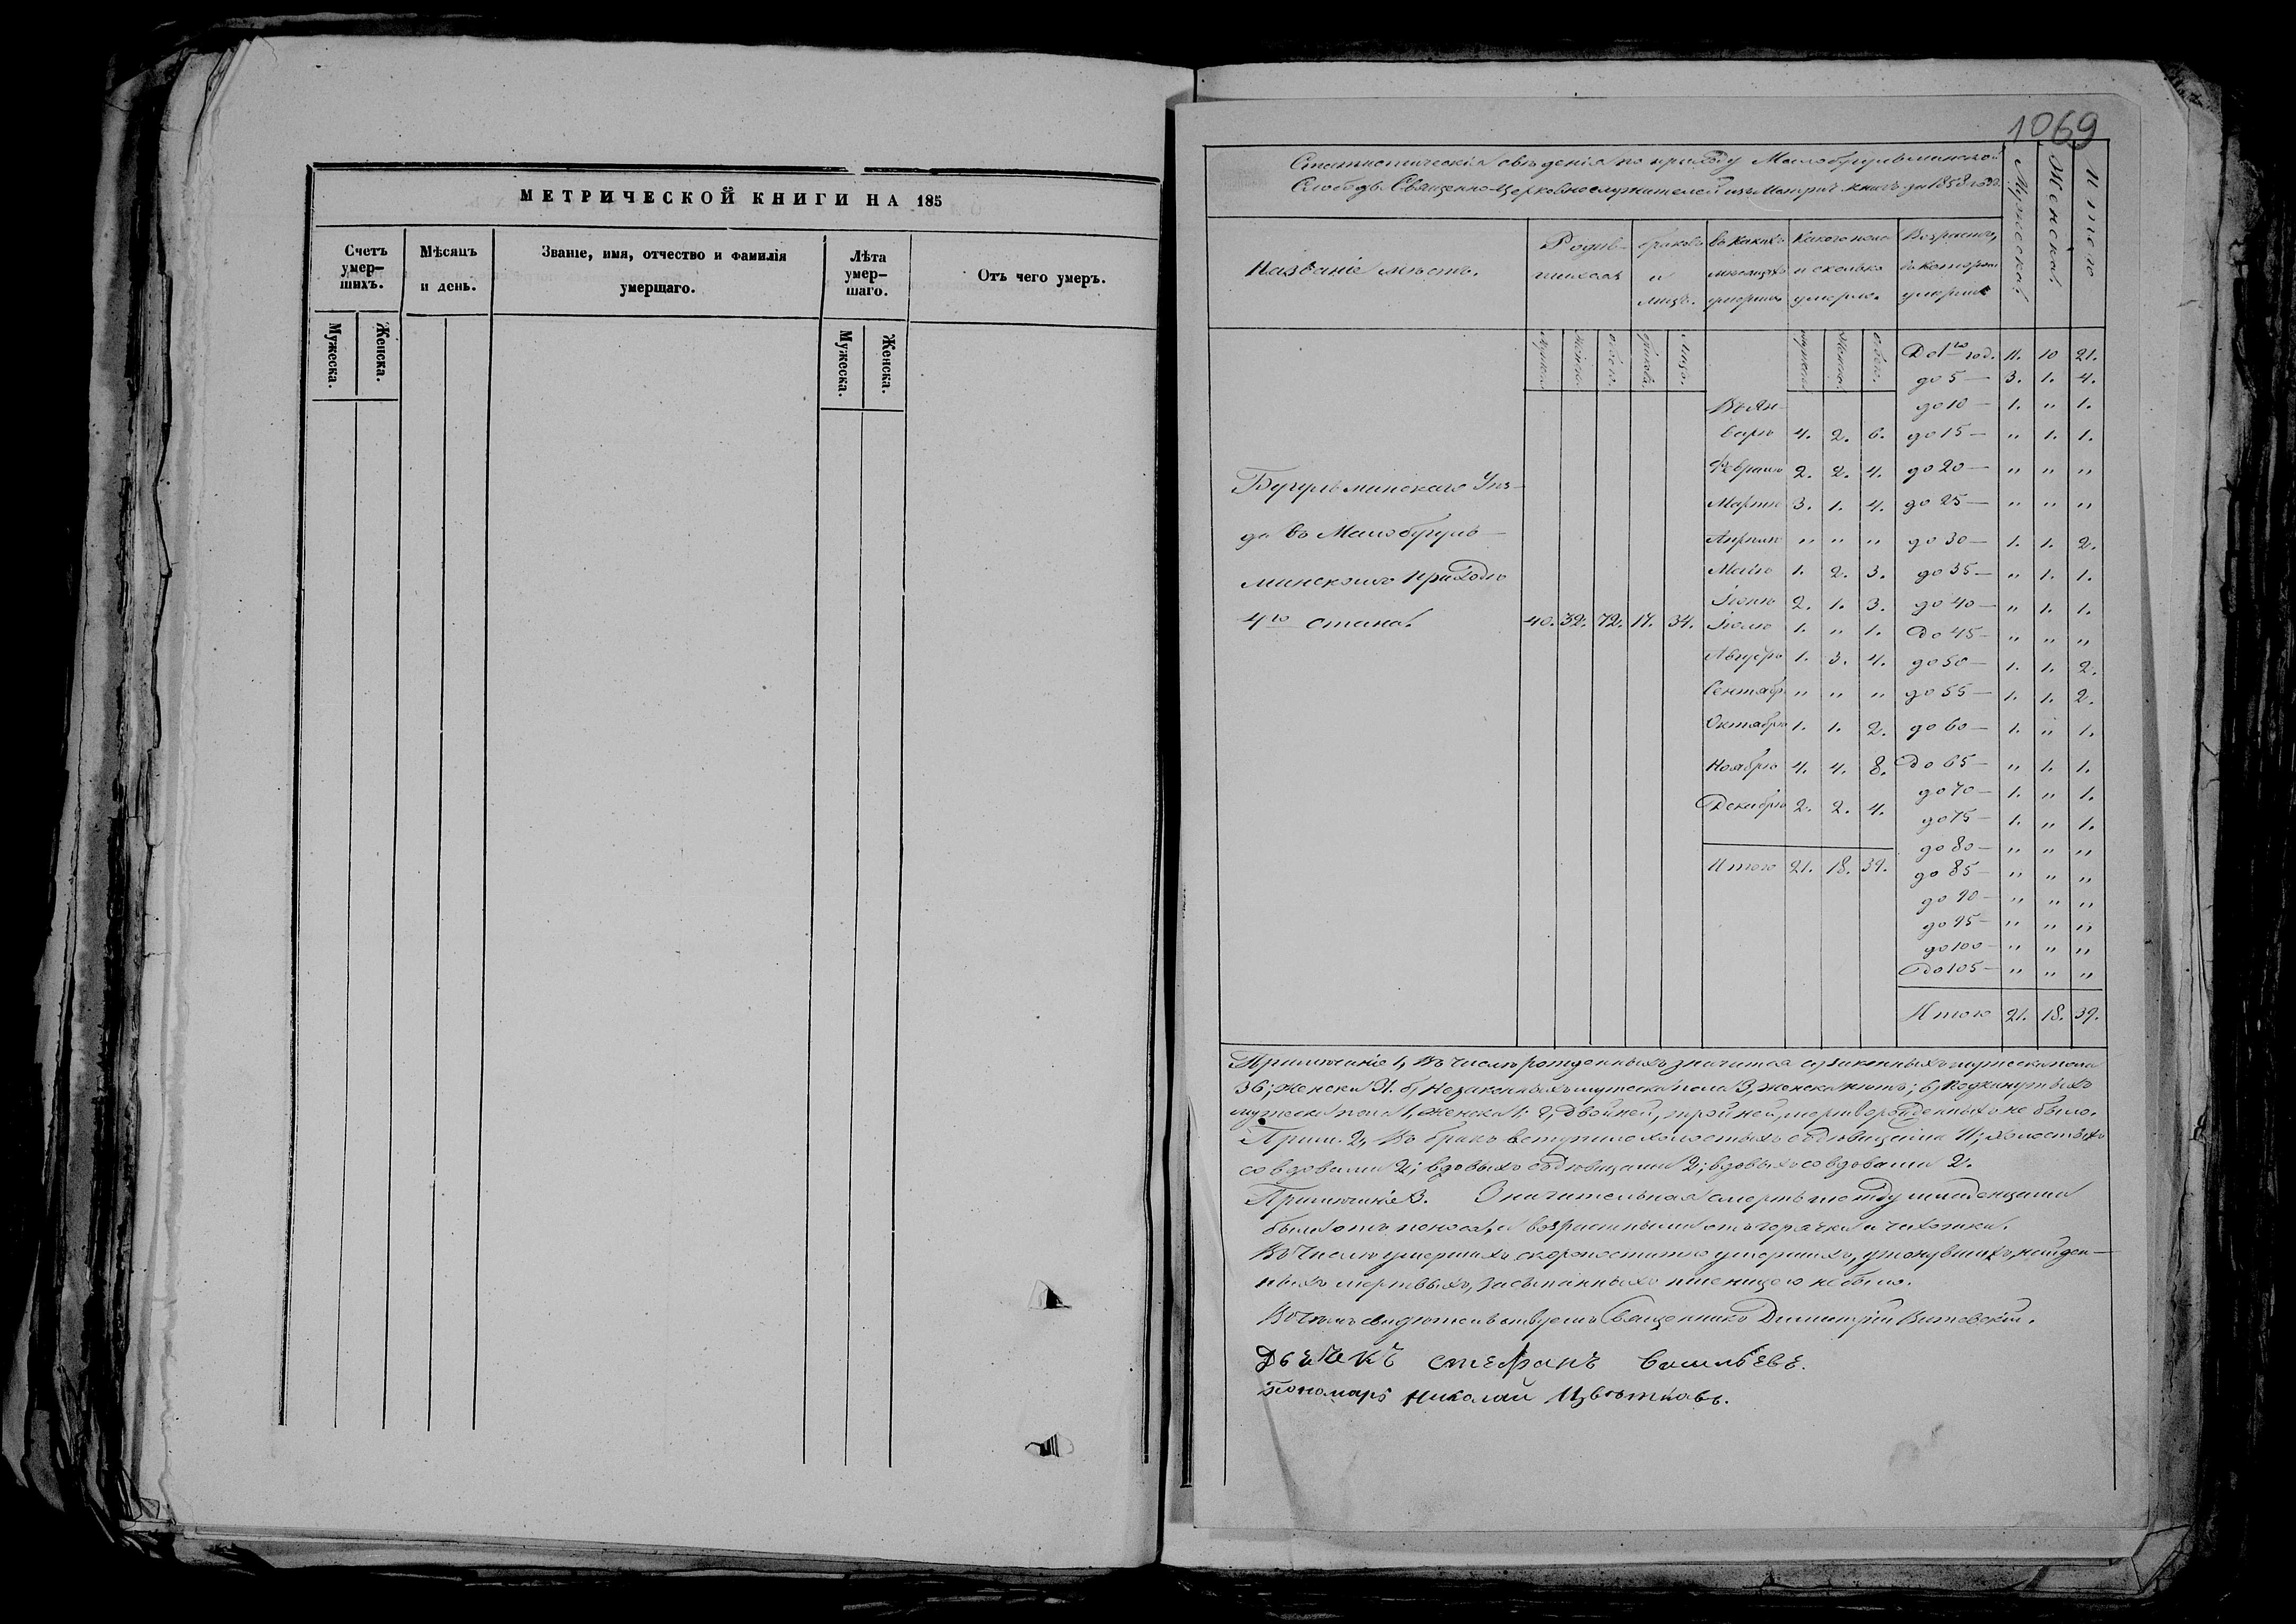 МЕТРИЧЕСКОЙ КНИГИ НА 185
Счетъ умер-шихъ.
Мѣсяцъ и день.
Званіе, имя, отчество и фамилія умершаго.
Лѣта умер-шаго.
Отъ чего умеръ.
Мужеска.
Женска.
Мужеска.
Женска.
1069
Статистическія свѣденія по приходу Малобугульминской
Слободы Священно-церковнослужителей изъ Метрич. книгъ за 1858 годъ.
Мужеска.
Женска.
Итого
Названіе мѣстъ.
Родив-шихся
браковъ и лицъ.
въ какихъ мѣсяцахъ умерли
Какого пола и сколько умерло.
Возрастъ, въ которомъ умерли
Мужеска.
Женска.
Обоего.
браковъ.
Лицъ.
Мужеска.
Женска.
Обоего.
До 1го год. 11. 10 21.
до 5 — 3. 1. 4.
Въ Ян- до 10 — 1. " 1.
варѣ 4. 2. 6. до 15 — " 1. 1.
Февралѣ 2. 2. 4. до 20 — " " "
Бугульминскаго Уѣз-
Мартѣ 3. 1. 4. до 25 — " " "
да въ Малобугуль-
Апрѣлѣ " " " до 30 — 1. 1. 2.
минскомъ приходѣ
Маѣ 1. 2. 3. до 35 — " 1. 1.
Іюнѣ 2. 1. 3. до 40 — " 1. 1.
4го стана. 40. 32. 72. 17. 34. Іюлѣ 1. " 1. До 45 — " " "
Августѣ 1. 3. 4. до 50 — 1. 1. 2.
Сентябр. " " " до 55 — 1. 1. 2.
Октябрѣ 1. 1. 2. до 60 — 1. " 1.
Ноябрѣ 4. 4. 8. До 65 — " 1. 1.
до 70 — 1. " 1.
Декабрѣ 2. 2. 4. до 75 — 1. " 1.
до 80 — " " "
Итого 21. 18. 39. до 85 — " " "
до 90 — " " "
до 95 — " " "
до 100 — " " "
До 105 — " " "
Итого 21. 18. 39.
Примѣчаніе 1, Въ числѣ рожденныхъ значится а, законныхъ мужеска пола
36; женска 31. б, Незаконныхъ мужеска пола 3, женска нѣтъ; в, Подкинутыхъ
мужеска пола 1, женска 1. г, Двойней, тройней, мертворожденныхъ не было.
Прим. 2, Въ бракъ вступило холостыхъ съ дѣвицами 11; холостыхъ
со вдовами 2; вдовыхъ съ дѣвицами 2; вдовыхъ со вдовами 2.
Примѣчаніе 3. Значительная смерть между младенцами
была отъ поноса, а возрастными отъ горячки и чихотки.
Въ числѣ умершихъ скоропостижно умершихъ, утонувшихъ, найден-
ныхъ мертвыхъ, засыпанныхъ пшеницею не было.
Въ чемъ свидѣтельствуемъ Священникъ Димитрій Витевскій.
Дьечекъ Стефанъ Васильевъ.
Пономарь Николай Цвѣтковъ.